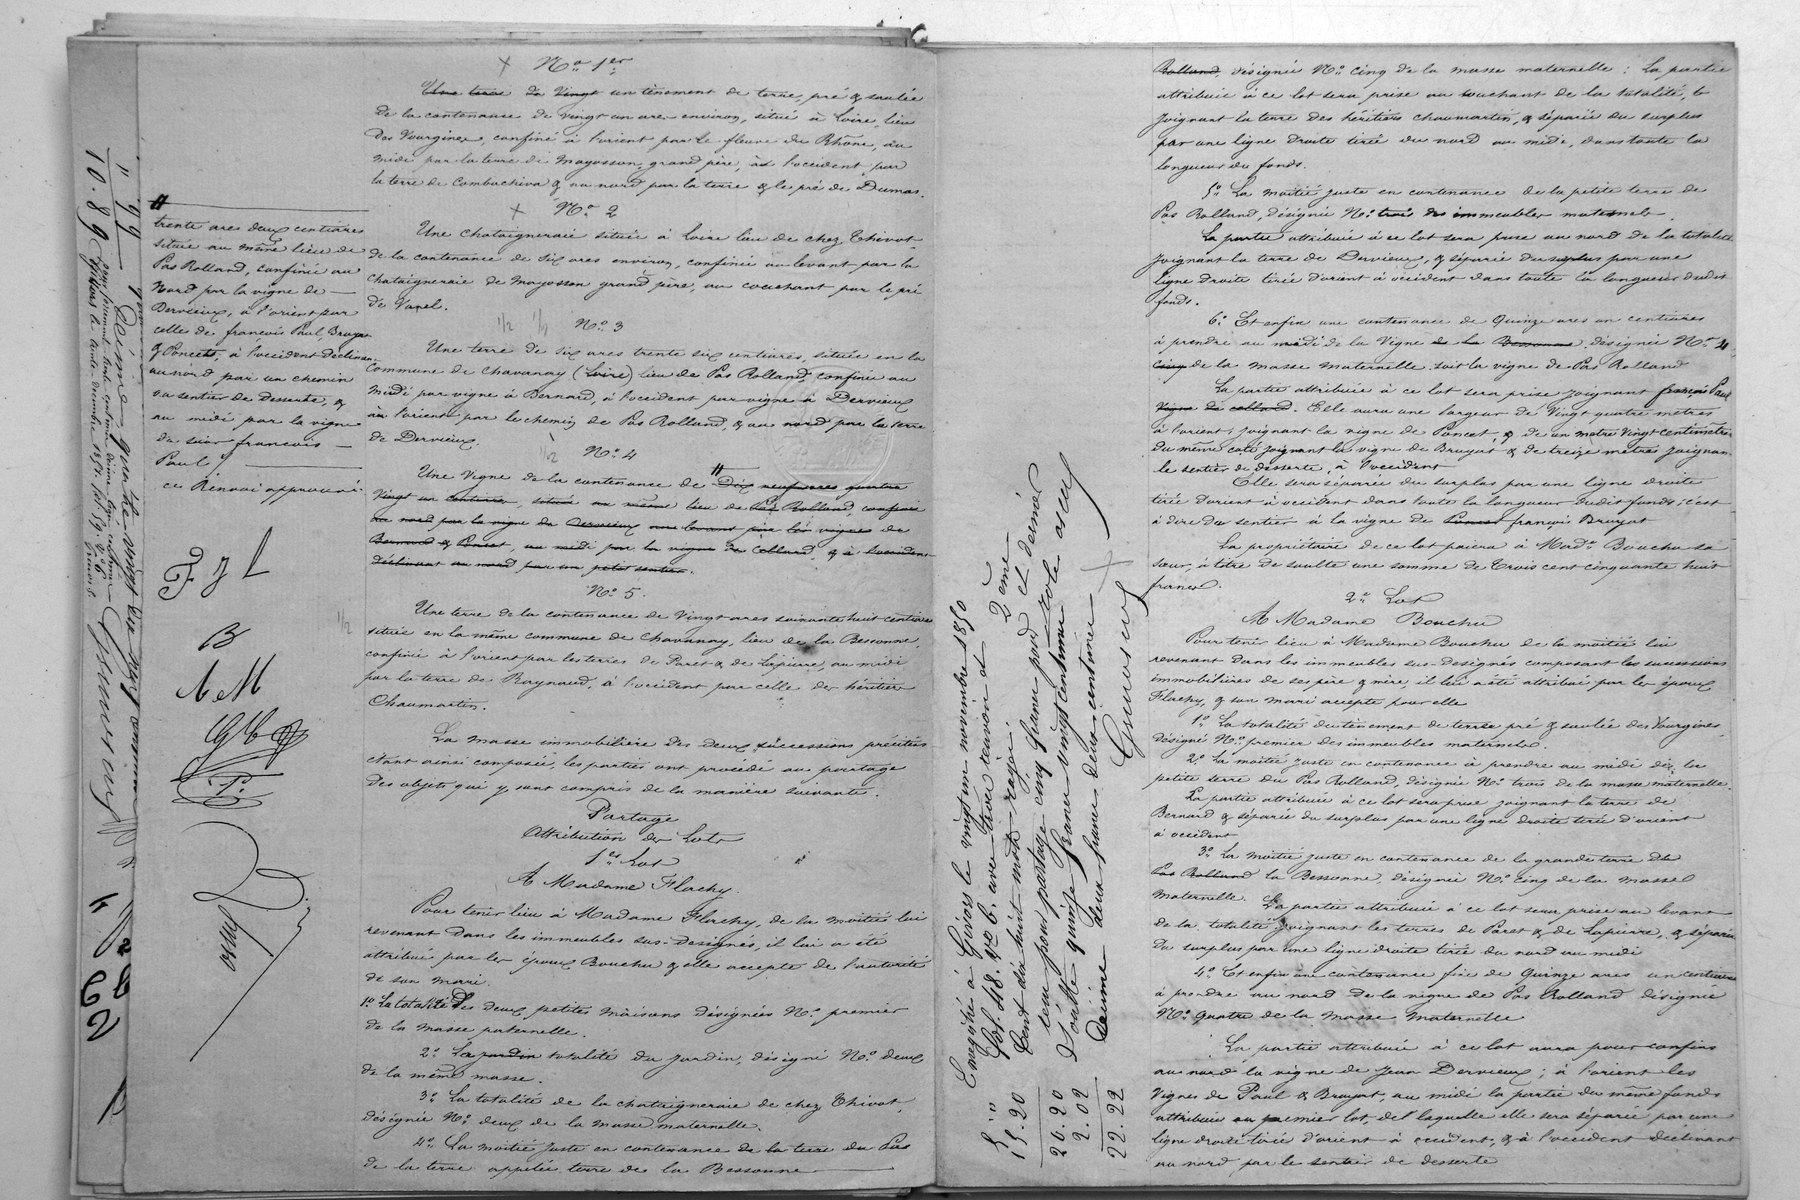 N.o 1.er
Une terre de Vingt un tènement de terre, pré & saulée
de la contenance de vingt un ares environ, situé à Loire, lieu
des Vourgines, confiné à l'orient par le fleuve du Rhône, au
midi par la terre de Mayosson, grand père, à l'occident par
la terre de Combachiva & au nord par la terre & le pré de Dumas.
N.o 2
Une chataigneraie située à Loire lieu de chez Thivot
de la contenance de six ares environ, confinée au levant par la
chataigneraie de Mayosson grand père, au couchant par le pré
de Vanel.
1/2
N.o 3
Une terre de six ares trente six centiares, située en la
commune de Chavanay (Loire) lieu de Pas Rolland, confinée au
midi par vigne à Bernard, à l'occident par vigne à Dervieux
à l'orient par le chemin de Pas Rolland, & au nord par la terre
de Dervieux.
1/2
N.o 4
Une Vigne de la contenance de Dix neuf ares quatre
Vingt un centiares, située au même lieu de Pas Rolland, confinée
au nord par la vigne de Dervieux au levant par les vignes de
Bernard & Poncet, au midi par la vigne de Collard, & à l'occident
déclinant au nord par un petit sentier.
N.o 5.
1/2
Une terre de la contenance de Vingt ares soixante huit centiares
située en la même commune de Chavanay, lieu de la Bessonne,
confinée à l'orient par les terres de Paret & de Lapierre, au midi
par la terre de Raynaud, à l'occident par celle des héritiers
Chaumartin.
La masse immobilière des deux successions précitées
étant ainsi composée, les parties ont procédé au partage
des objets qui y sont compris de la manière suivante.
Partage
Attribution des Lots
1.er Lot
A Madame Flachy.
Pour tenir lieu à Madame Flachy, de la moitié lui
revenant dans les immeubles sus-designés, il lui a été
attribué par les époux Bouchu & elle accepte de l'autorité
de son mari.
1.o La totalité des deux petites maisons désignées N.o premier
de la masse paternelle.
2.o Le jardin totalité du jardin, désigné N.o deux
de la même masse.
3.o La totalité de la chataigneraie de chez Thivot,
désignée N.o deux de la masse maternelle.
4.o La moitié juste en contenance de la terre du Pas
de la terre appelée terre de la Bessonne
trente ares deux centiares
située au même lieu de
Pas Rolland, confinée au
Nord par la vigne de
Dervieux, à l'orient par
celle de francois Paul, Bruyat
& Poncet, à l'occident déclinant
au nord par un chemin
ou sentier de desserte, &
au midi par la vigne
du sieur francois
Paul
ce Renvoi approuvé.
F J f
B
A M
Enregistré à Givors le vingt un novembre 1850
fol. 48. V.o C. 6. avec trois renvois et
cent dix huit mots rayés.
reçu pour partage cinq francs pour
Soulte quinze francs vingt centimes
Décime deux francs deux centimes
5. "
15. 20
20. 20
2. 02
22. 22
Rolland désignée N.o cinq de la masse maternelle : La partie
attribuée à ce lot sera prise au couchant de la totalité,
joignant la terre des héritiers Chaumartin, & séparée du surplus
par une ligne droite tirée du nord au midi, dans toute la
longueur du fonds.
5.o La moitié juste en contenance de la petite terre de
Pas Rolland, désignée N.o trois des immeubles maternels.
La partie attribuée à ce lot sera prise au nord de la totalité
joignant la terre de Dervieux, & séparée du surplus par une
ligne droite tirée d'orient à occident dans toute la longueur dudit
fonds.
6.o Et enfin une contenance de Quinze ares un centiares
à prendre au midi de la Vigne de la Bessonne, désignée N.o 4
cinq de la masse maternelle. soit la vigne de Pas Rolland
La partie attribuée à ce lot sera prise joignant françois Paul
Vigne de collard. Elle aura une largeur de Vingt quatre mètres
à l'orient, joignant la vigne de Poncet, & de un mètre Vingt centimètres
du même coté joignant la vigne de Bruyat & de treize mètres joignant
le sentier de desserte, à l'occident
Elle sera séparée du surplus par une ligne droite
tirée d'orient à occident dans toute la longueur dudit fonds, c'est
à dire du sentier à la vigne de Poncet françois Bruyat
La propriétaire de ce lot paiera à Mad.e Bouchu sa
sœur, à titre de soulte une somme de Trois cent cinquante huit
francs.
2.e Lot
A Madame Bouchu
Pour tenir lieu à Madame Bouchu de la moitié lui
revenant dans les immeubles sus-designés composant les successions
immobilières de ses père & mère, il lui a été attribué par les époux
Flachy, & son mari accepte pour elle
1.o La totalité du tènement de terre pré & saulée des Vourgines,
désigné N.o premier des immeubles maternels.
2.o La moitié juste en contenance à prendre au midi de la
petite terre du Pas Rolland, désignée N.o trois de la masse maternelle.
La partie attribuée à ce lot sera prise joignant la terre de
Bernard & séparée du surplus par une ligne droite tirée d'orient
à occident
3.o La moitié juste en contenance de la grande terre de
Pas Rolland La Bessonne, désignée N.o cinq de la masse
maternelle. La partie attribuée à ce lot sera prise au levant
de la totalité joignant les terres de Paret & de Lapierre, & séparée
du surplus par une ligne droite tirée du nord au midi
4.o Et enfin une contenance fixe de Quinze ares un centiares
à prendre au nord de la vigne de Pas Rolland désignée
N.o quatre de la masse maternelle
La partie attribuée à ce lot aura pour confins
au nord la vigne de Jean Dervieux ; à l'orient les
Vignes de Paul & Bruyat, au midi la partie du même fonds
attribuée au premier lot, de laquelle elle sera séparée par une
ligne droite tirée d'orient à occident, & à l'occident déclinant
au nord par le sentier de desserte